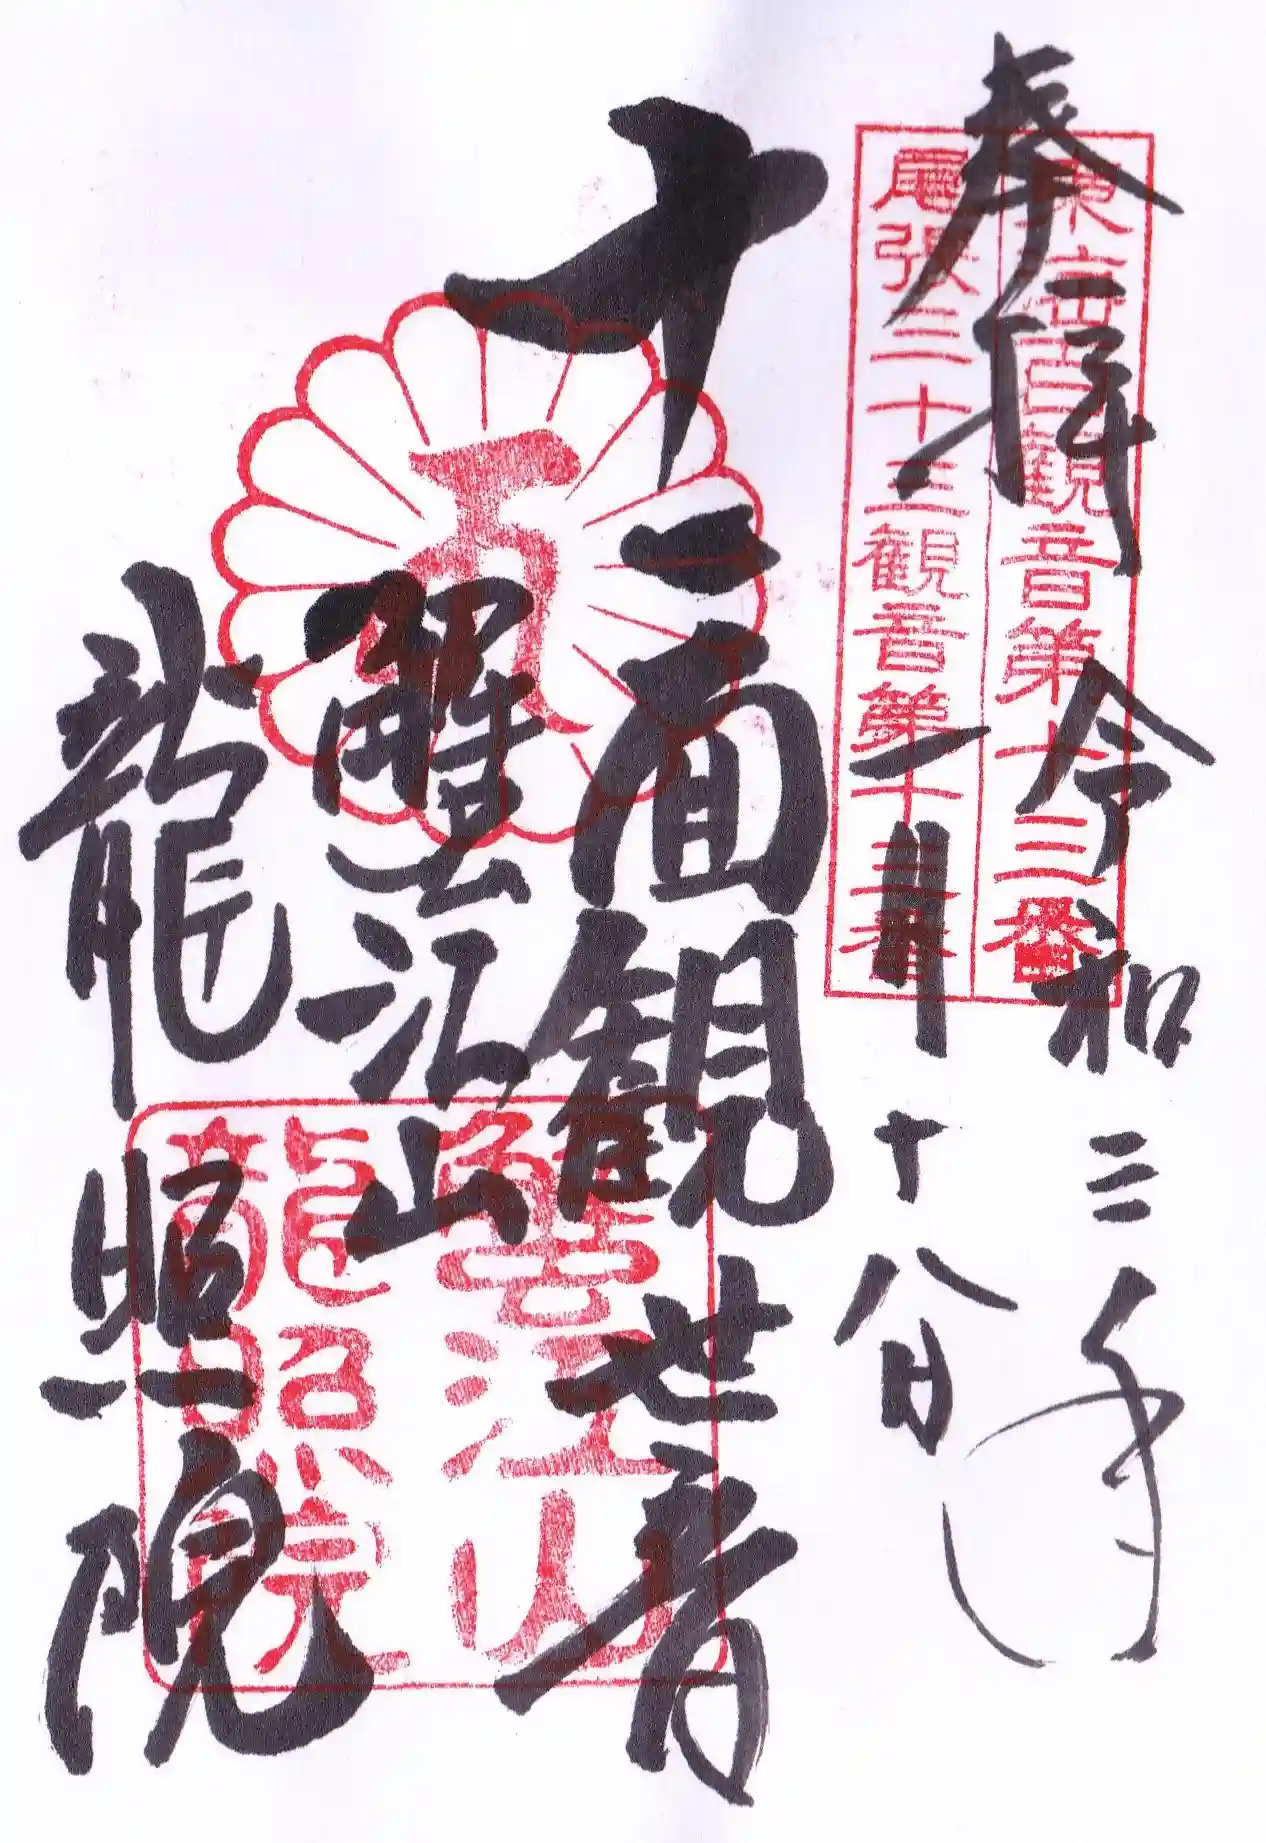 奉拝
令和三年
一月十八日
東海百観音第十三番
尾張三十三観音第十三番
十一面観世音
蟹江山
龍照院
蟹江山
龍照院